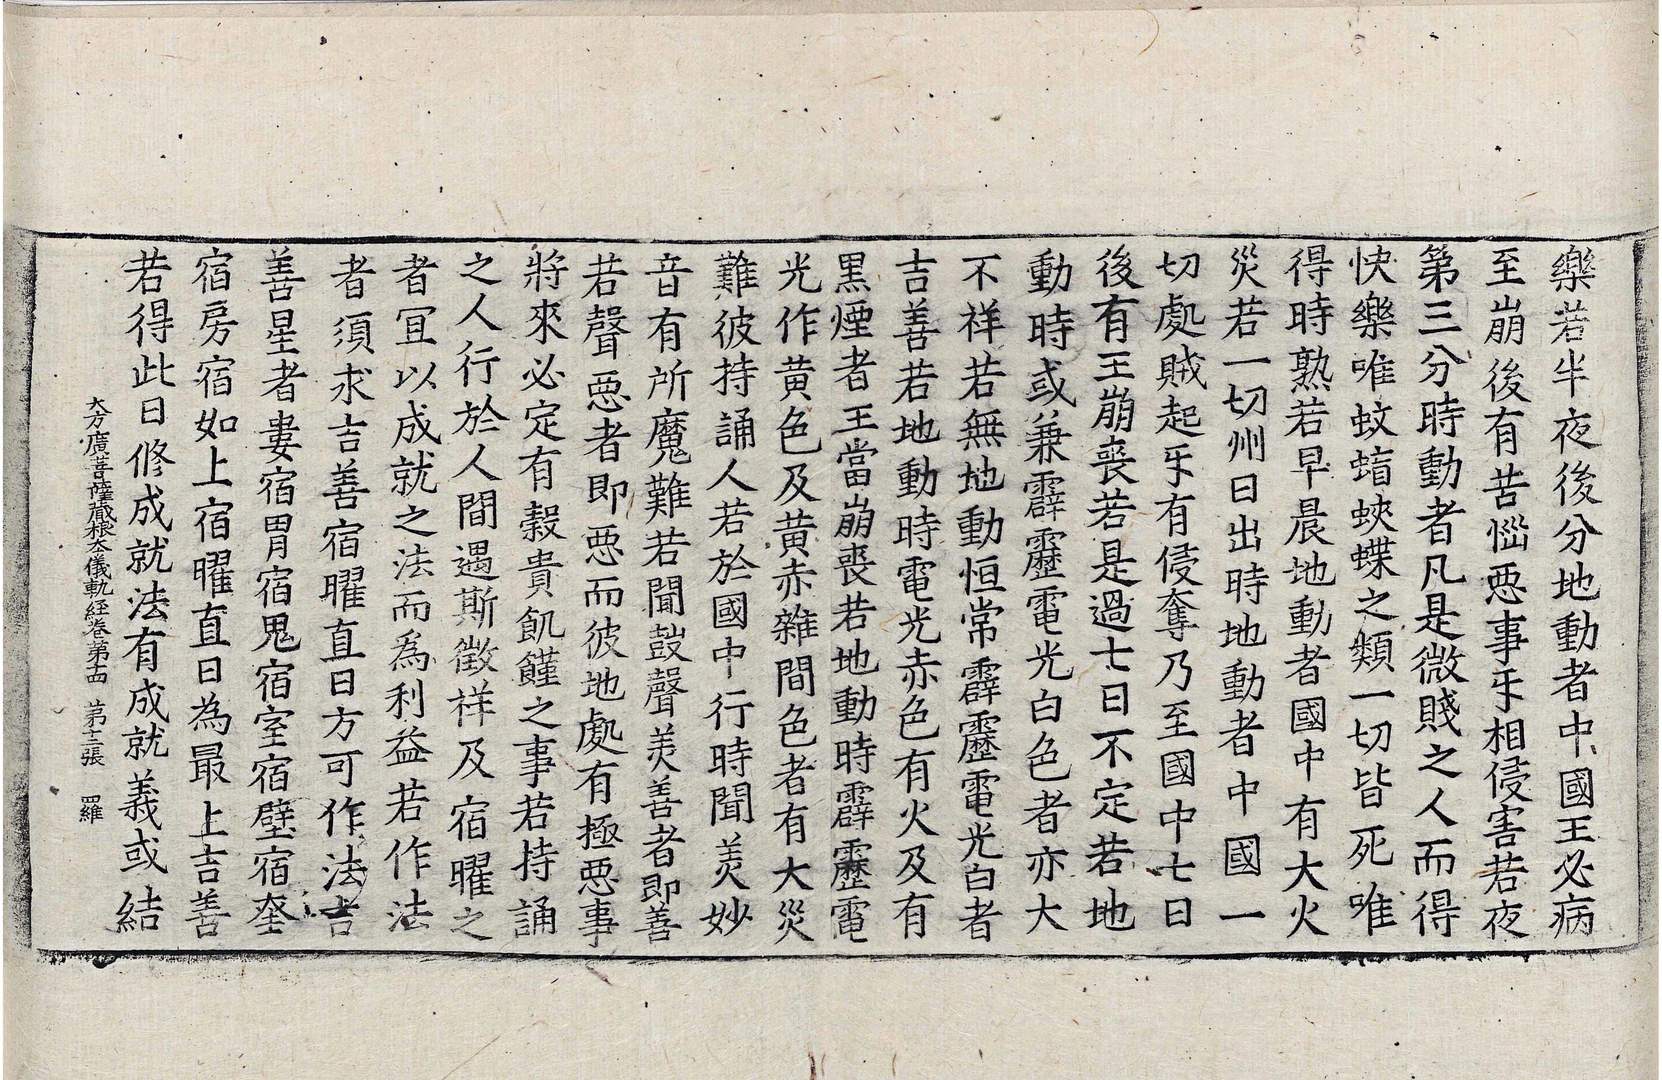 樂若半夜後分地動者中國王必病
至崩後有苦惱惡事乎相侵害若夜
第三分時動者凡是微賤之人而得
快樂唯蚊蝱蛺蝶之類一切皆死唯
得時熟若早晨地動者國中有大火
災若一切州日出時地動者中國一
切處賊起乎有侵奪乃至國中七日
後有王崩喪若是過七日不定若地
動時或兼霹靂電光白色者亦大
不祥若無地動恒常霹靂電光白者
吉善若地動時電光赤色有火及有
黑煙者王當崩喪若地動時霹靂電
光作黄色及黄赤雜間色者有大災
難彼持誦人若於國中行時聞羙妙
音有所魔難若聞鼓聲羙善者即善
若聲惡者即惡而彼地處有極惡事
將來必定有穀貴飢饉之事若持誦
之人行於人間遇斯徵祥及宿曜之
者冝以成就之法而爲利益若作法
者須求吉善宿曜直日方可作法吉
善星者婁宿胃宿鬼宿室宿壁宿奎
宿房宿如上宿曜直日為最上吉善
若得此日修成就法有成就義或結
大方廣菩薩藏根本儀軌經卷第十四 第十二張 羅